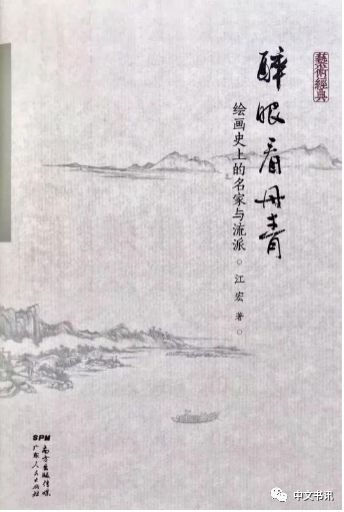 藝術經典
醉眼看丹青
绘画史上的名家与流派
江宏 著
SPM
南方出版传媒
广东人民出版社
中文书讯